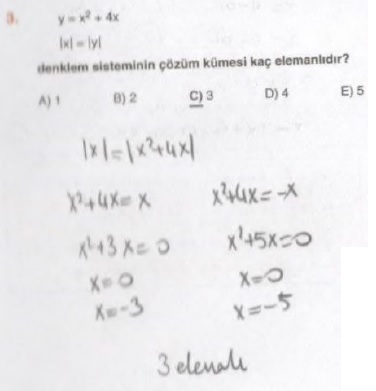 3. y = x² + 4x
|x| = |y|
denklem sisteminin çözüm kümesi kaç elemanlıdır?
A) 1 B) 2 C) 3 D) 4 E) 5
|x|=|x²+4x|
x²+4x=x x²+4x=-x
x²+3x=0 x²+5x=0
x=0 x=0
x=-3 x=-5
3 elemalı